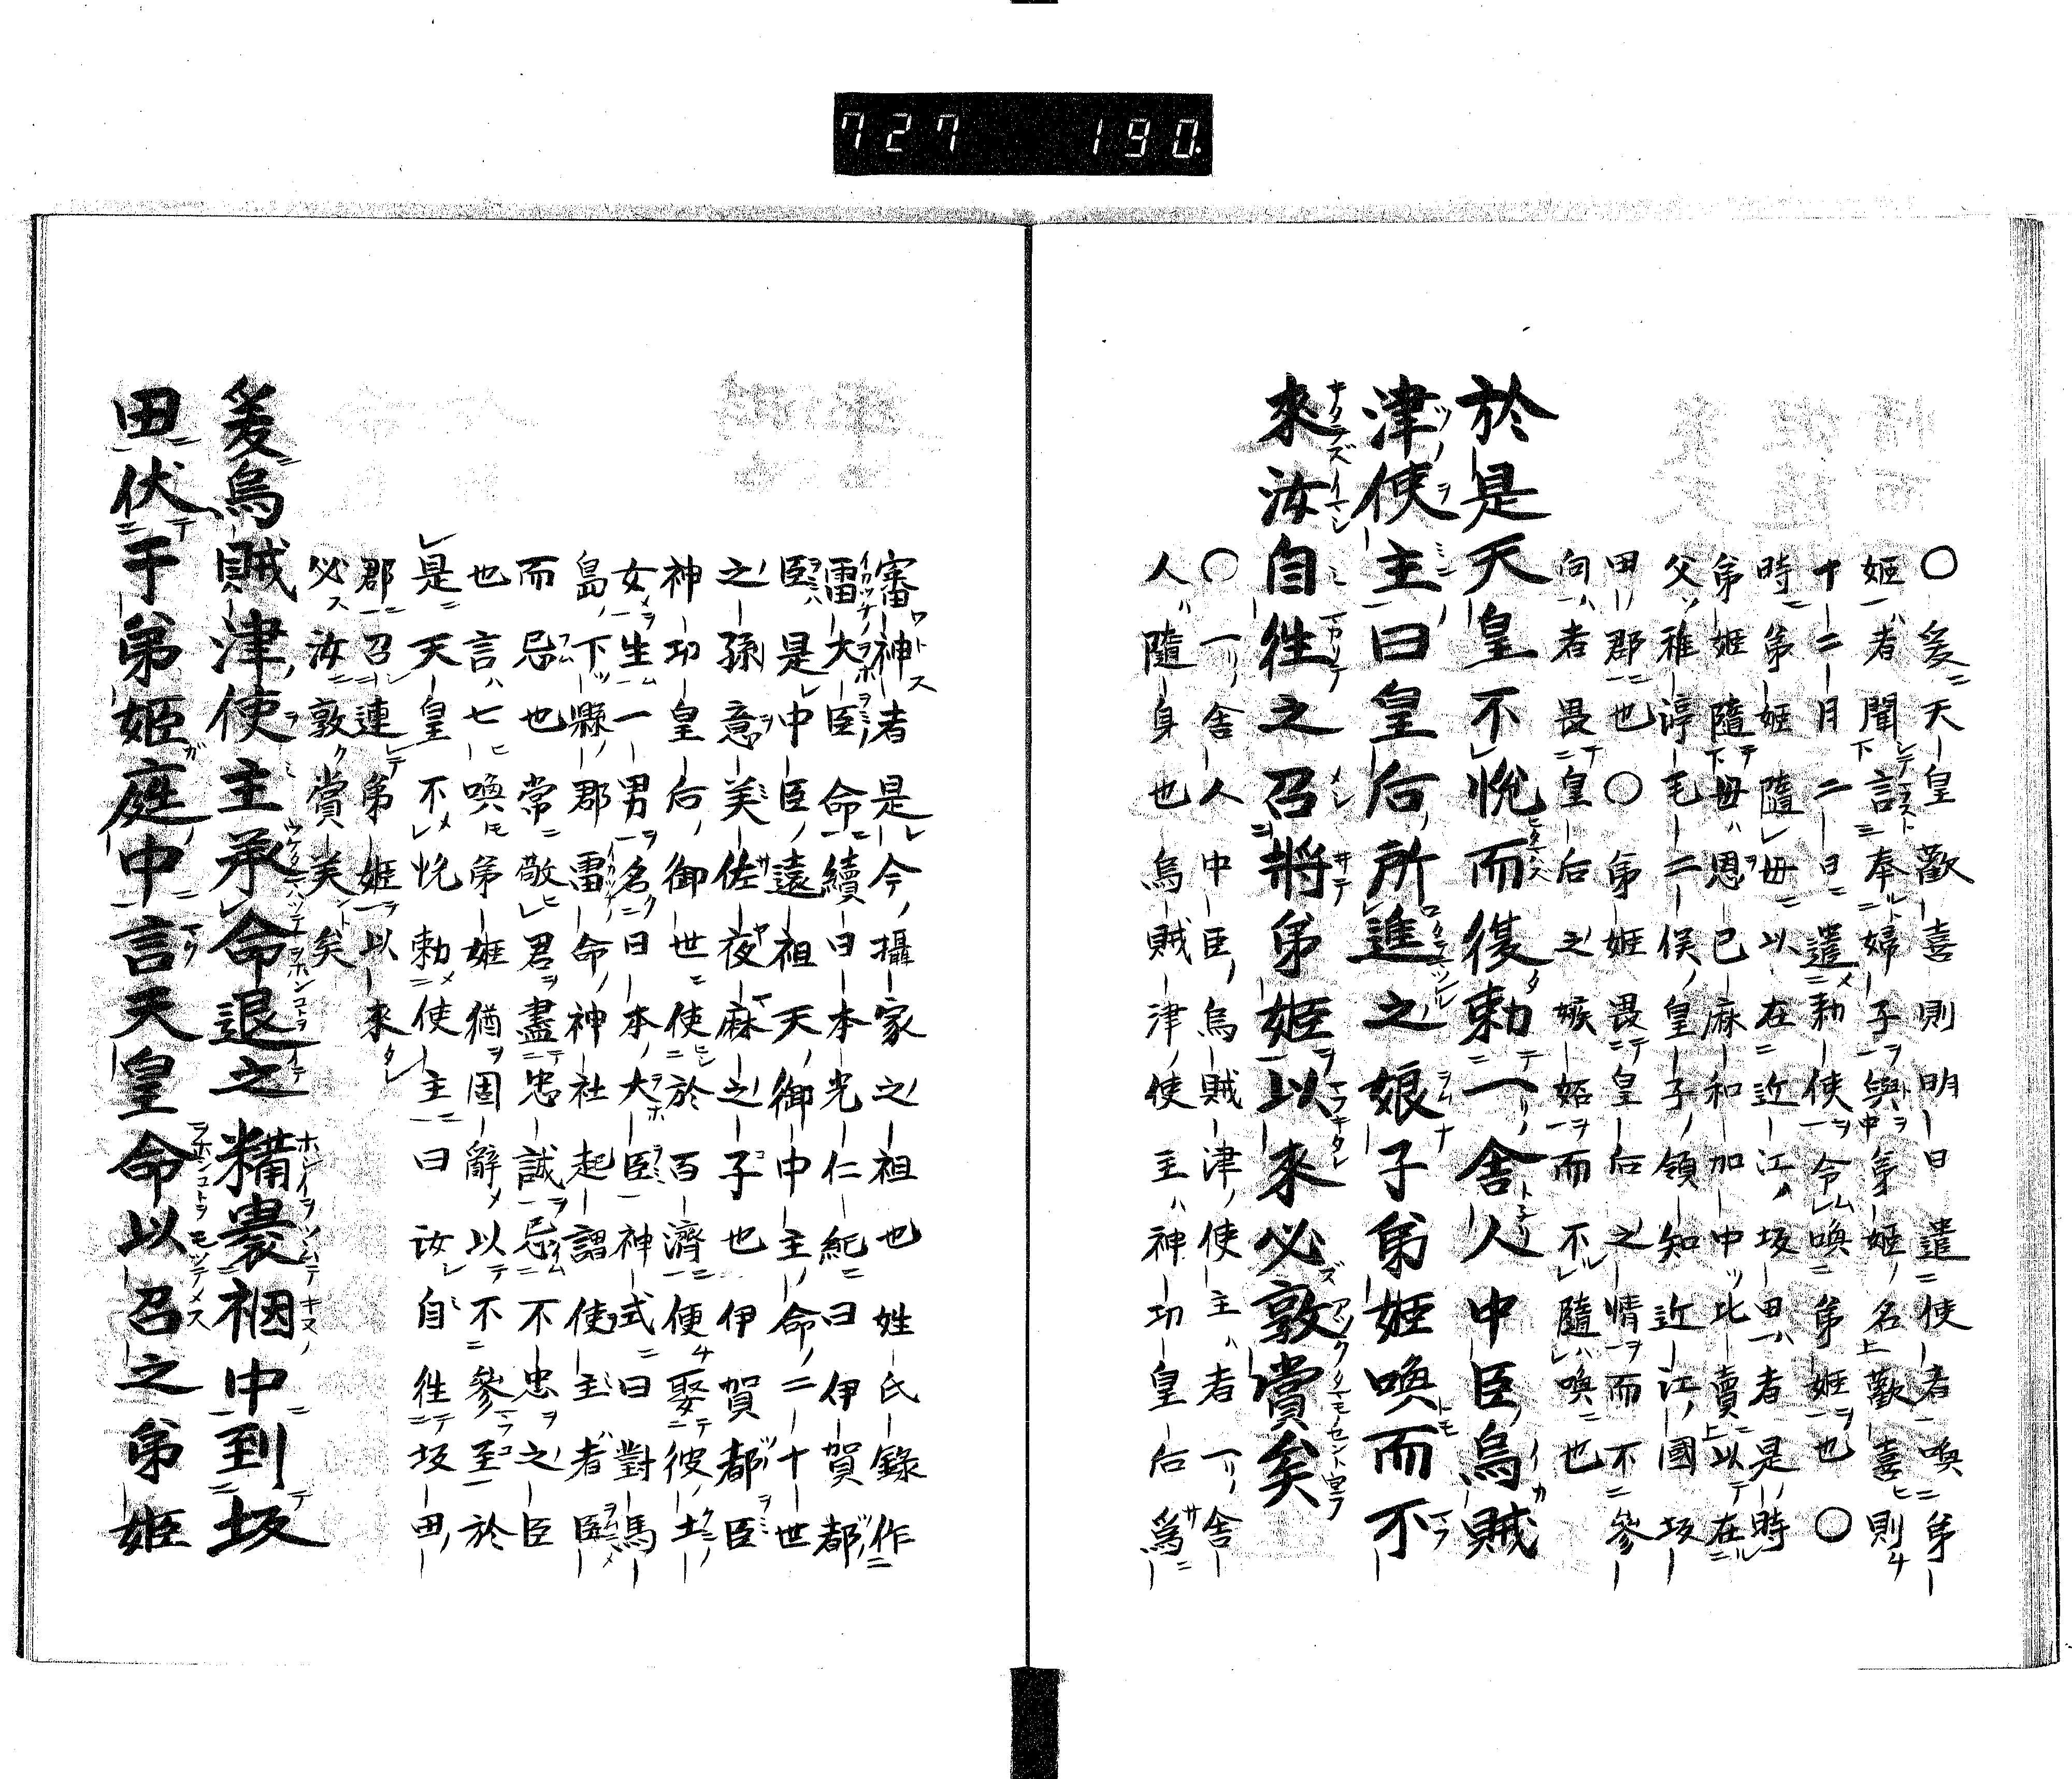 727 190.
○爰天皇歡喜則明日遣使者喚弟
姫者聞言奉婦子與弟姫名歡喜則
十二月二日遣勅使令喚弟姫也○
時弟姫隨母以在近江坂田者是時
弟姫隨母恩已麻和加中比賣以在
父稚渟毛二俣皇子領知近江國坂
田郡也○弟姫畏皇后之情而不參
向者畏皇后之嫉妬而不隨喚也
於是天皇不悅而復勅一舍人中臣烏賊
津使主曰皇后所進之娘子弟姫喚而不
來汝自往之召將弟姫以來必敦賞矣
○一舍人中臣烏賊津使主者一舍
人隨身也烏賊津使主神功皇后爲
審神者是今攝家之祖也姓氏錄作
雷大臣命續日本光仁紀曰伊賀都
臣是中臣遠祖天御中主命二十世
之孫意美佐夜麻之子也伊賀都臣
神功皇后御世使於百濟便娶彼土
女生一男名曰本大臣神式曰對馬
島下縣郡雷命神社起謂使主者臣
而忌也常敬君盡忠誠忌不忠之臣
也言七喚弟姫猶固辭以不參至於
是天皇不悅勅使主曰汝自往坂田
郡召連弟姫以來
必汝敦賞美矣
爰烏賊津使主承命退之糒褁裀中到坂
田伏于弟姫庭中言天皇命以召之弟姫